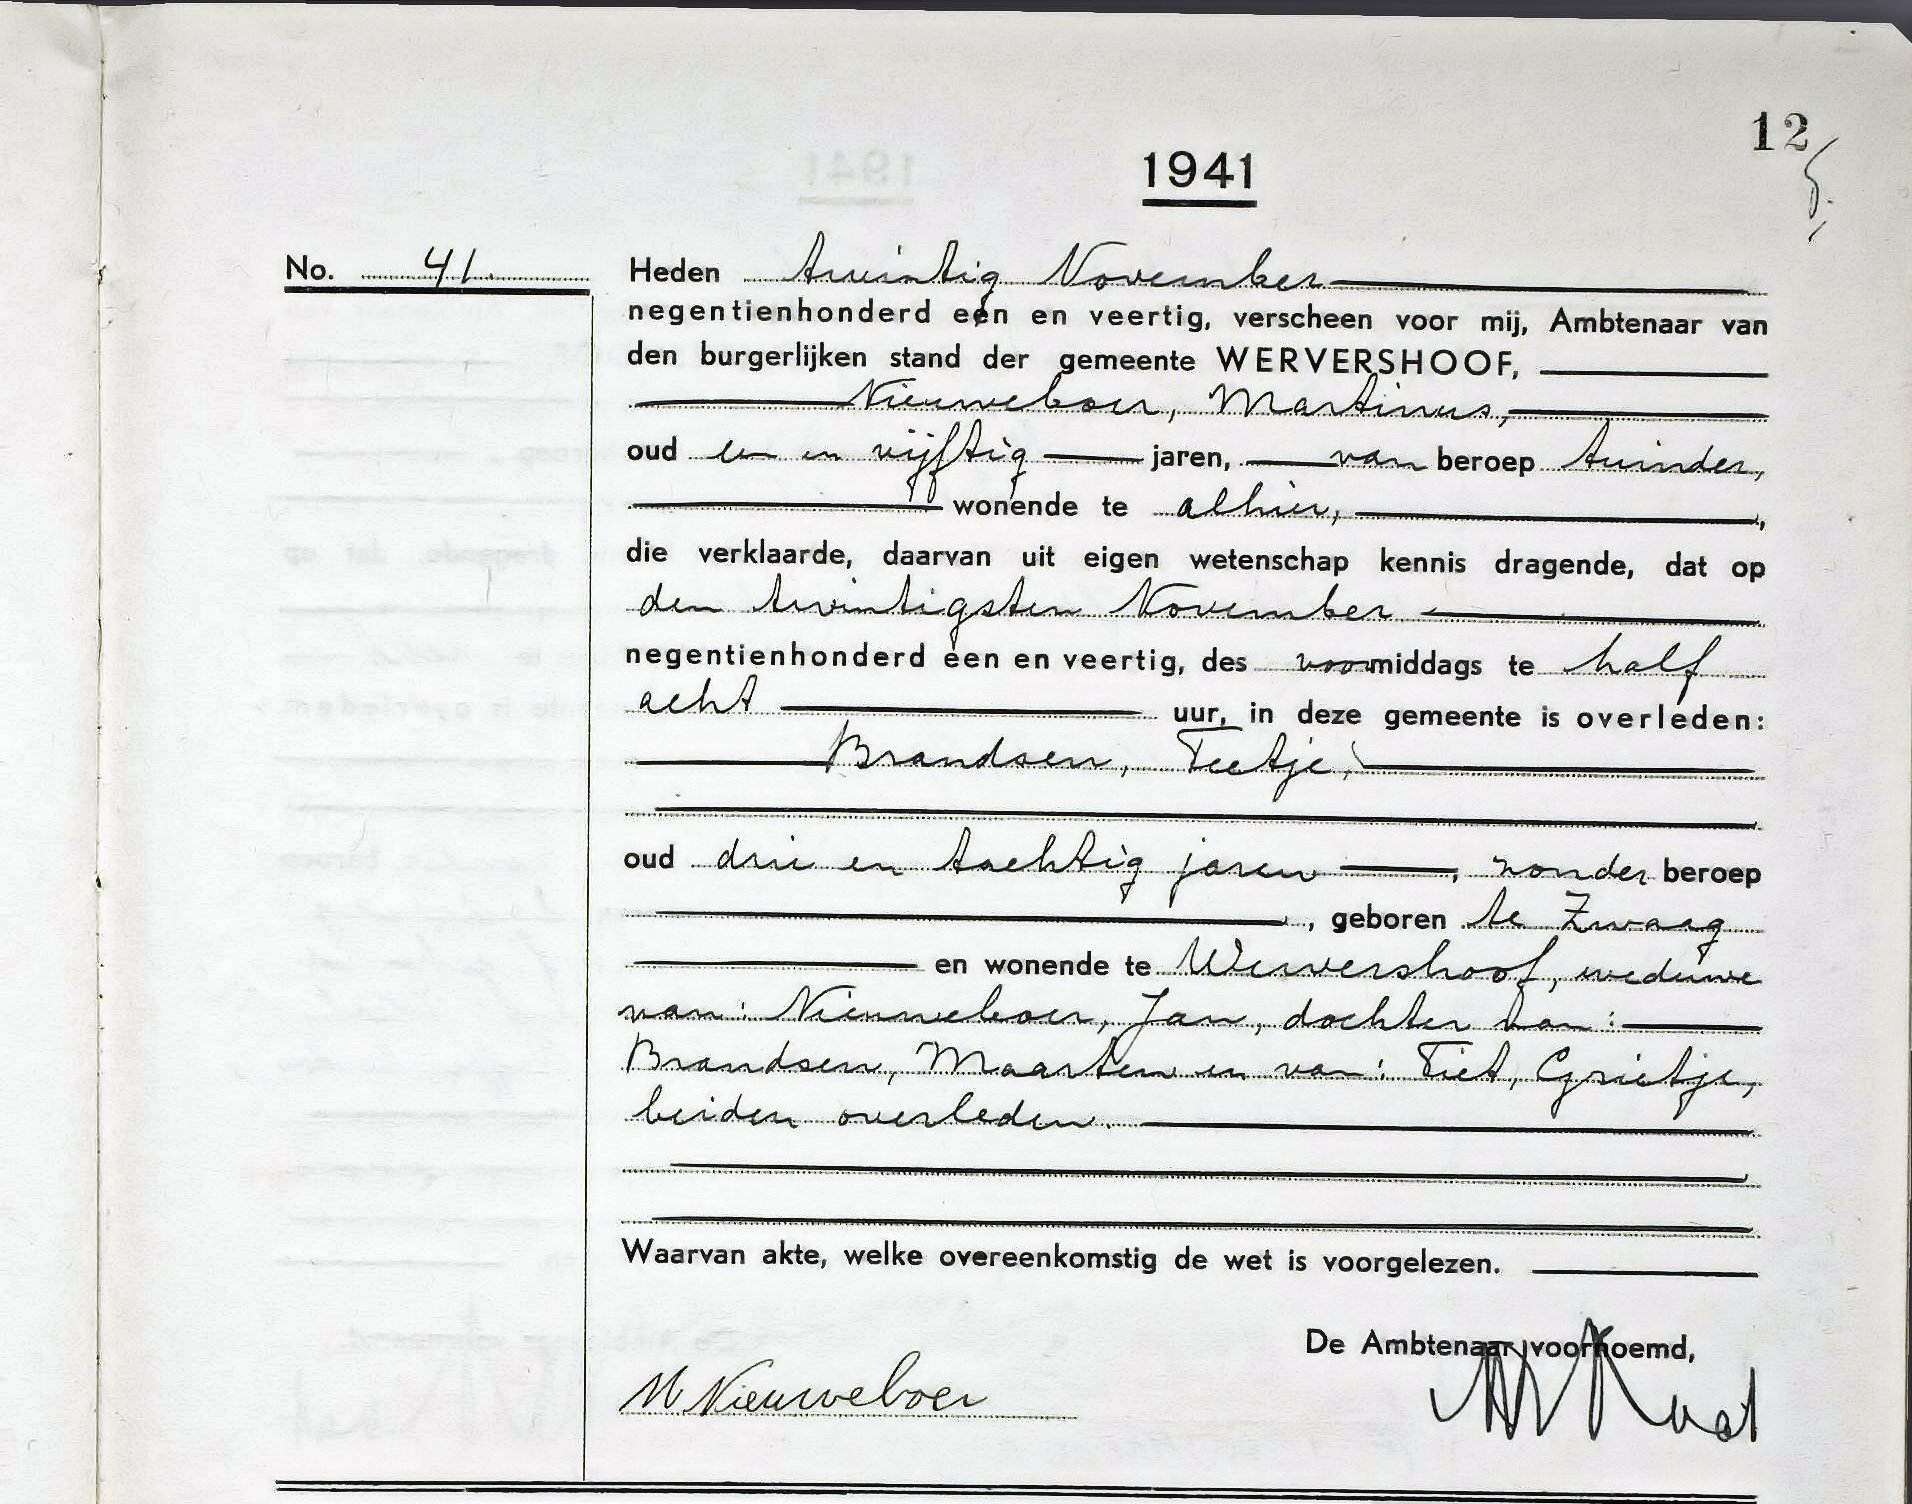 12
1941
No. 41.
Heden twintig November
negentienhonderd één en veertig, verscheen voor mij, Ambtenaar van
den burgerlijken stand der gemeente WERVERSHOOF,
Nieuweboer, Martinus,
oud een en vijftig jaren, van beroep tuinder,
wonende te alhier,
die verklaarde, daarvan uit eigen wetenschap kennis dragende, dat op
den twintigsten November
negentienhonderd een en veertig, des voormiddags te half
acht uur, in deze gemeente is overleden:
Brandsen, Teetje,
oud drie en tachtig jaren, zonder beroep
, geboren te Zwaag
en wonende te Wervershoof, weduwe
van: Nieuweboer, Jan, dochter van:
Brandsen, Maarten en van: Tiet, Grietje,
beiden overleden.
Waarvan akte, welke overeenkomstig de wet is voorgelezen.
De Ambtenaar voornoemd,
M Nieuweboer